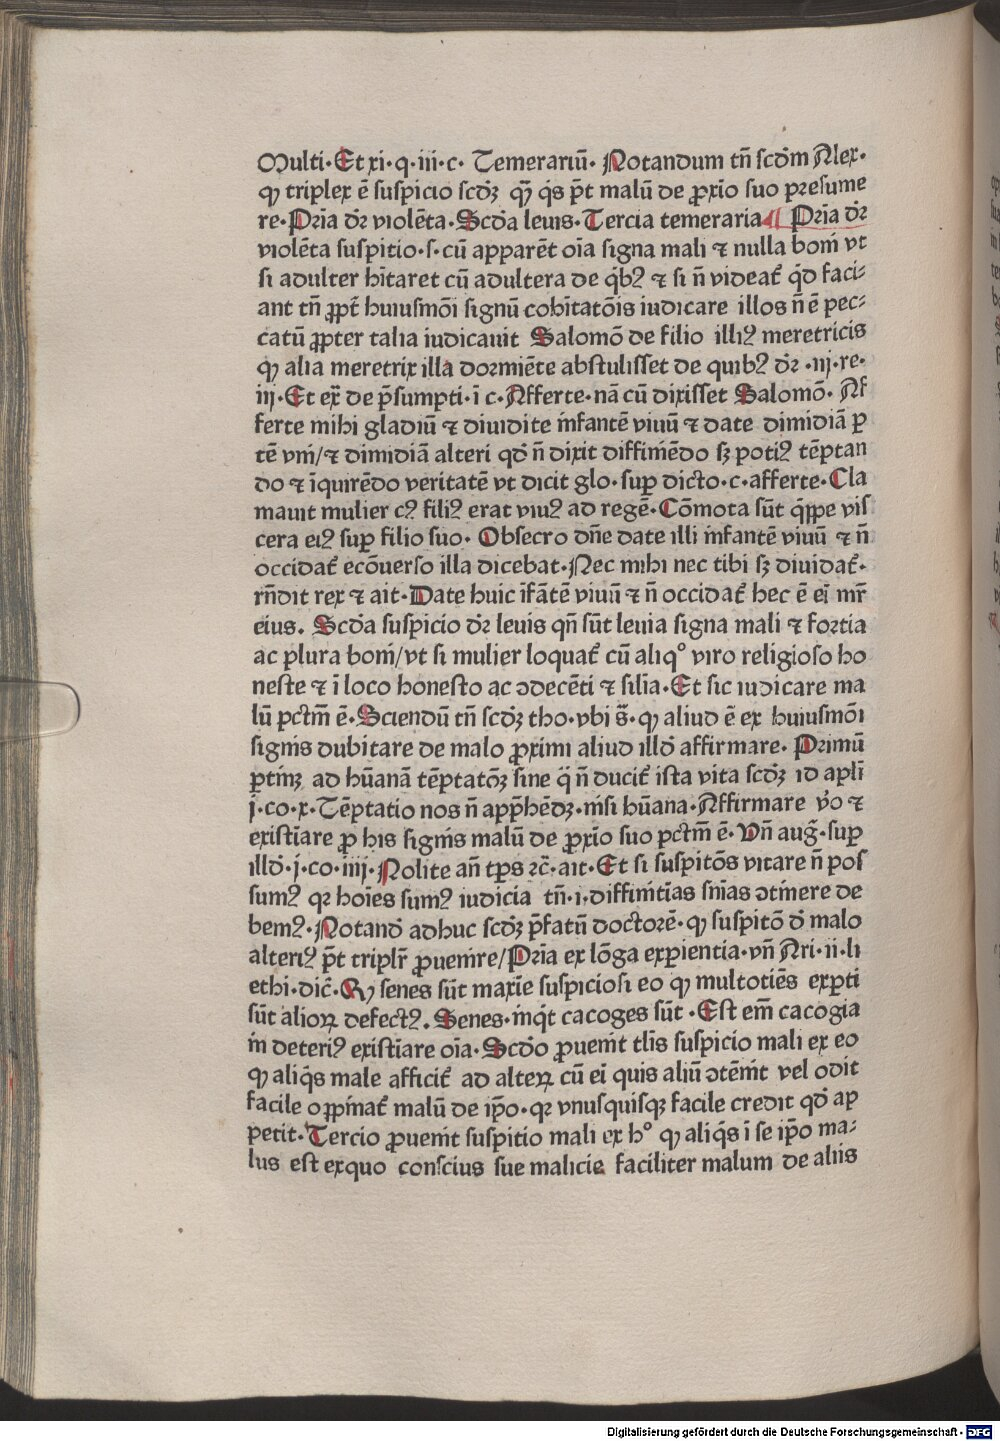 Multi·Et xi·q·iii·c· Temerariū· Notandum tn̄ scd̄m Alex·
ꝙ triplex ē suspicio scd̄ꝫ qꝫ q̄s p̄t malū de ꝓxīo suo presume
re·Prīa dr̄ violēta·Scd̄a leuis·Tercia temeraria ¶ Prīa dr̄
violēta suspitio·s·cū apparēt oīa signa mali ⁊ nulla bōm̄ vt
si adulter hītaret cū adultera de qͥbꝰ ⁊ si n̄ videat̄ qͥd faci⸗
ant tn̄ ꝓpt̄ huiusmōi signū cohītatōis iudicare illos n̄ ē pec⸗
catū ꝓpter talia iudicauit Salomō de filio illiꝰ meretricis
ꝙ alia meretrix illa dormiēte abstulisset de quibꝰ dr̄ ·iij·re·
iij·Et ex̄ de p̄sumpti·ī c·Afferte·nā cū dixisset Salomō· Af
ferte mihi gladiū ⁊ diuidite infantē viuū ⁊ date dimidiā ꝑ
tē vni/⁊ dimidiā alteri qd̄ n̄ dixit diffiniēdo sꝫ potiꝰ tēptan
do ⁊ īquirēdo veritatē vt dicit glo·suꝑ dicto·c·afferte·Cla
mauit mulier cꝰ filiꝰ erat viuꝰ ad regē·Cōmota sūt q̄ꝑpe vis
cera eiꝰ suꝑ filio suo· Obsecro dn̄e date illi infantē viuū ⁊ n̄
occidat̄ ecōuerso illa dicebat·Nec mihi nec tibi sꝫ diuidat̄·
rn̄dit rex ⁊ ait·Date huic īfātē viuū ⁊ n̄ occidat̄ hec ē eī mr̄
eius. Scd̄a suspicio dr̄ leuis qn̄ sūt leuia signa mali ⁊ fortia
ac plura boni/vt si mulier loquat̄ cū aliqͦ viro religioso ho
neste ⁊ ī loco honesto ac ↄdecēti ⁊ silīa·Et sic iudicare ma
lū pctm̄ ē·Sciendū tn̄ scd̄ꝫ tho·vbi s̄·ꝙ aliud ē ex huiusmōi
signis dubitare de malo ꝓximi aliud illd̄ affirmare· Primū
ꝑtinꝫ ad hūanā tēptatōꝫ sine qͣ n̄ ducit̄ ista vita scd̄ꝫ id apl̄i
j·co·x·Tēptatio nos n̄ app̄hēdꝫ·nisi hūana·Affirmare v̄o ⁊
existīare ꝓ his signis malū de ꝓxīo suo pctm̄ ē·Vn̄ auḡ·suꝑ
illd̄·j·co·iiij·Nolite an̄ tp̄s ⁊c̄·ait·Et si suspitōs vitare n̄ pos
sumꝰ qꝛ hoīes sumꝰ iudicia tn̄·i·diffinitīas sn̄ias ↄtinere de
bemꝰ·Notand̄ adhuc scd̄ꝫ p̄fatū doctorē·ꝙ suspitō d̄ malo
alteriꝰ p̄t triplr̄ ꝓuenire/Prīa ex lōga exꝑientia·vn̄ Ari·ii·li
ethi·dic̄·Qꝙ senes sūt maxīe suspiciosi eo ꝙ multotiēs exꝑti
sūt alioꝝ defectꝰ. Senes·inqͥt cacoges sūt ·Est em̄ cacogia
in deteriꝰ existīare oīa·Scd̄o ꝓuenit tl̄is suspicio mali ex eo
ꝙ aliq̄s male afficit̄ ad alteꝝ cū eī quis aliū ↄtēnit vel odit
facile opīnat̄ malū de ip̄o·qꝛ vnusquisqꝫ facile credit qd̄ ap
petit·Tercio ꝓuenit suspitio mali ex hͦ ꝙ aliq̄s ī se ip̄o ma⸗
lus est exquo conscius sue malicie faciliter malum de aliis
Digitalisierung gefördert durch die Deutsche Forschungsgemeinschaft - DFG